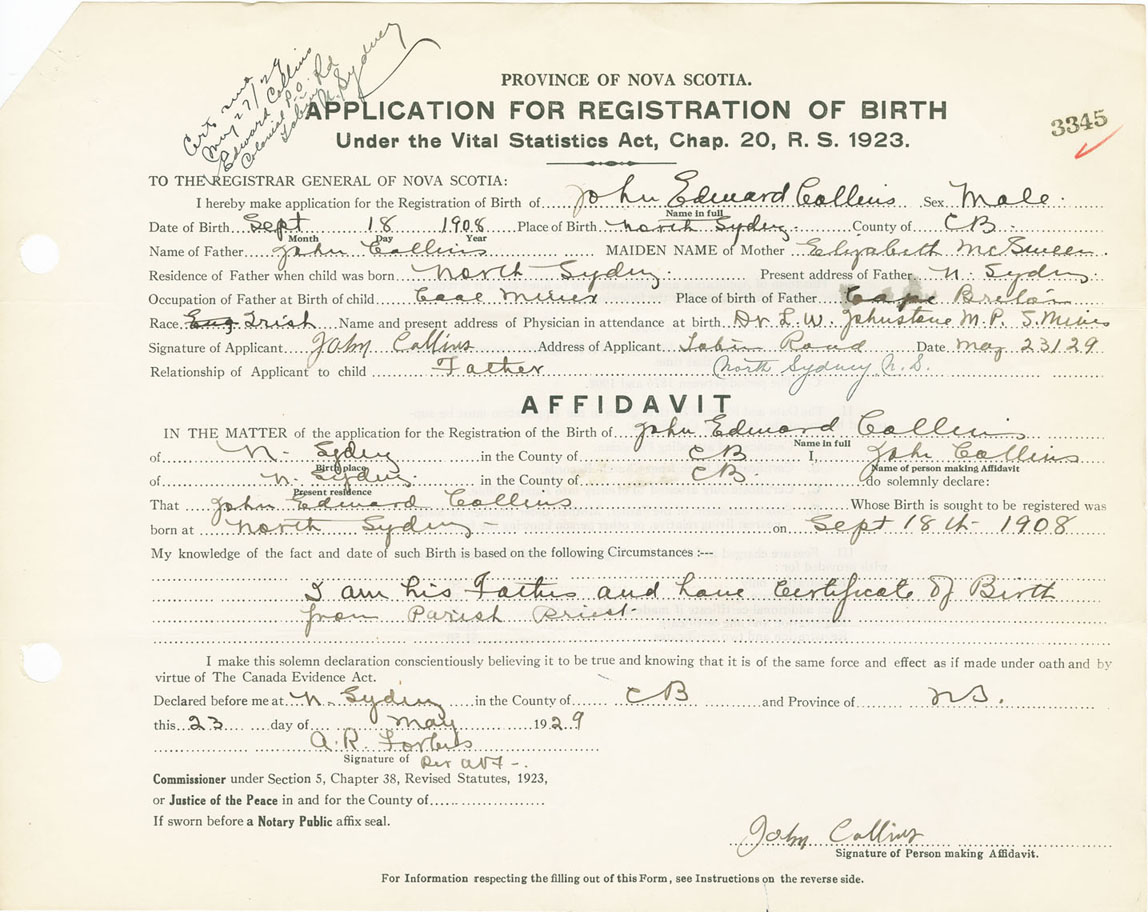 Cert sent
May 27/29
Edward Collins
Colonial P.O.
Tobin Rd
N. Sydney
PROVINCE OF NOVA SCOTIA.
APPLICATION FOR REGISTRATION OF BIRTH
3345
Under the Vital Statistics Act, Chap. 20, R. S. 1923.
TO THE REGISTRAR GENERAL OF NOVA SCOTIA:
I hereby make application for the Registration of Birth of John Edward Collins Sex Male
Name in full
Date of Birth Sept 18 1908 Place of Birth North Sydney County of CB
Month Day Year
Name of Father John Collins MAIDEN NAME of Mother Elizabeth McSween
Residence of Father when child was born North Sydney Present address of Father N. Sydney
Occupation of Father at Birth of child Coal Miner Place of birth of Father Cape Breton
Race Eng. Irish Name and present address of Physician in attendance at birth Dr L. W. Johnstone M.P. S. Mines
Signature of Applicant John Collins Address of Applicant Tobin Road Date May 23/29
Relationship of Applicant to child Father North Sydney N.S.
AFFIDAVIT
IN THE MATTER of the application for the Registration of the Birth of John Edward Collins
Name in full
of N. Sydney in the County of CB I, John Collins
Birth place Name of person making Affidavit
of N. Sydney in the County of CB do solemnly declare:
Present residence
That John Edward Collins Whose Birth is sought to be registered was
born at North Sydney on Sept 18th 1908
My knowledge of the fact and date of such Birth is based on the following Circumstances :---
I am his Father and have Certificate of Birth
from Parish Priest
I make this solemn declaration conscientiously believing it to be true and knowing that it is of the same force and effect as if made under oath and by
virtue of The Canada Evidence Act.
Declared before me at N. Sydney in the County of CB and Province of NS.
this 23 day of May 1929
A. R. Forbes
Signature of Per
Commissioner under Section 5, Chapter 38, Revised Statutes, 1923,
or Justice of the Peace in and for the County of
If sworn before a Notary Public affix seal.
John Collins
Signature of Person making Affidavit.
For Information respecting the filling out of this Form, see Instructions on the reverse side.